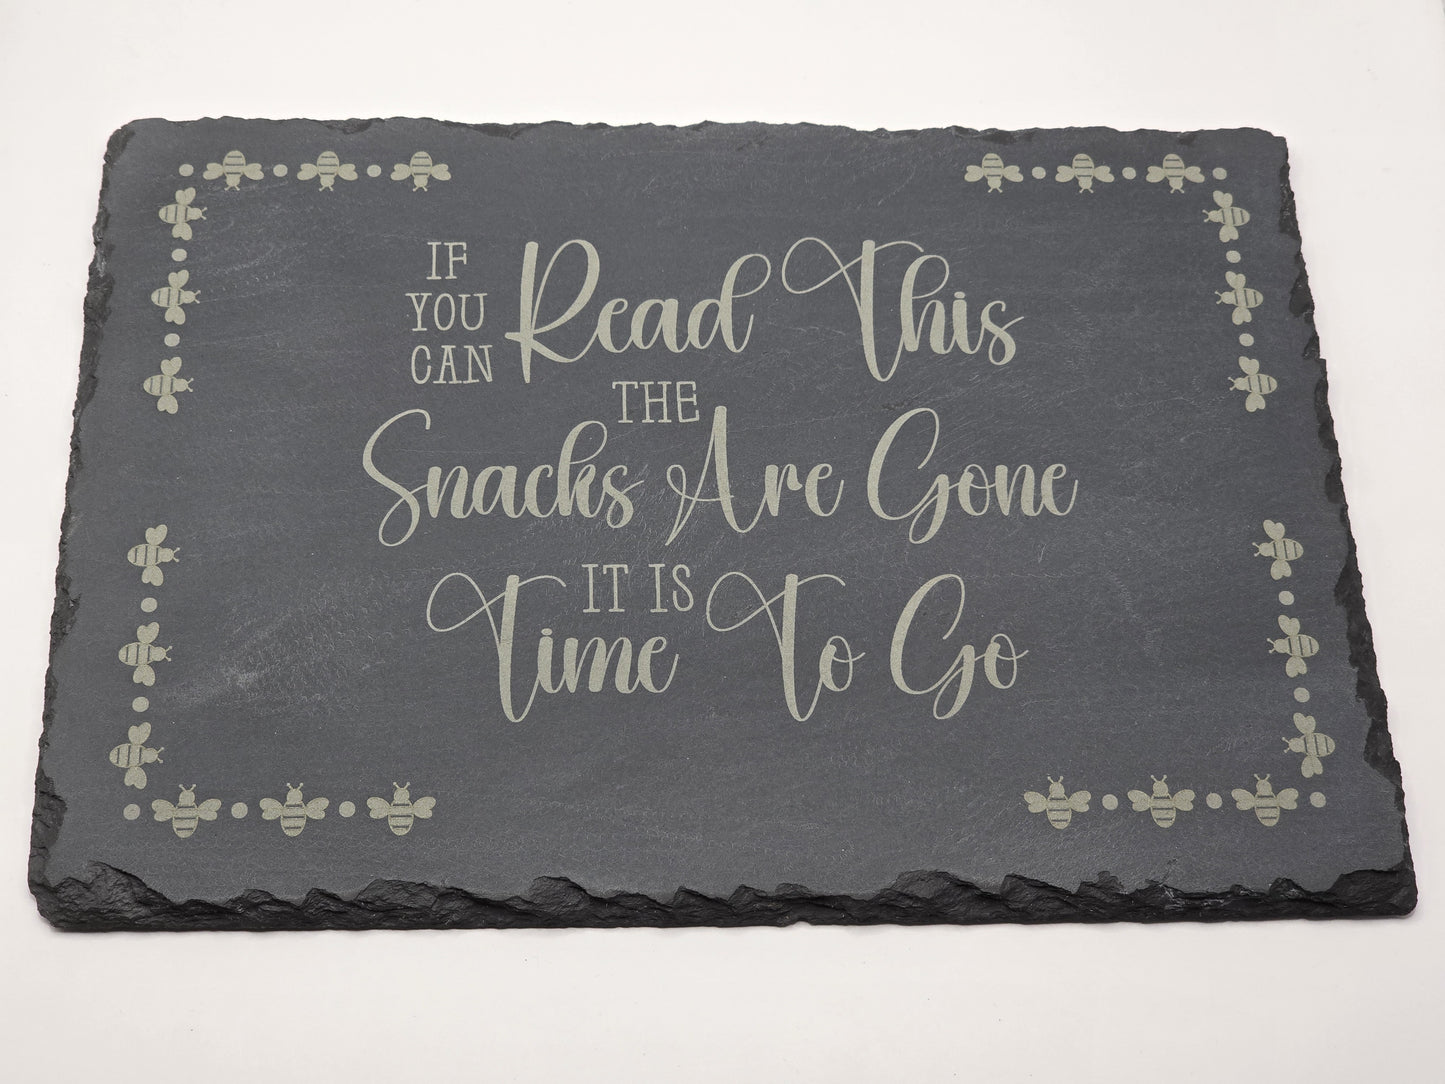 IF
YOU
CAN
Read This
THE
Snacks Are Gone
IT IS
Time To Go